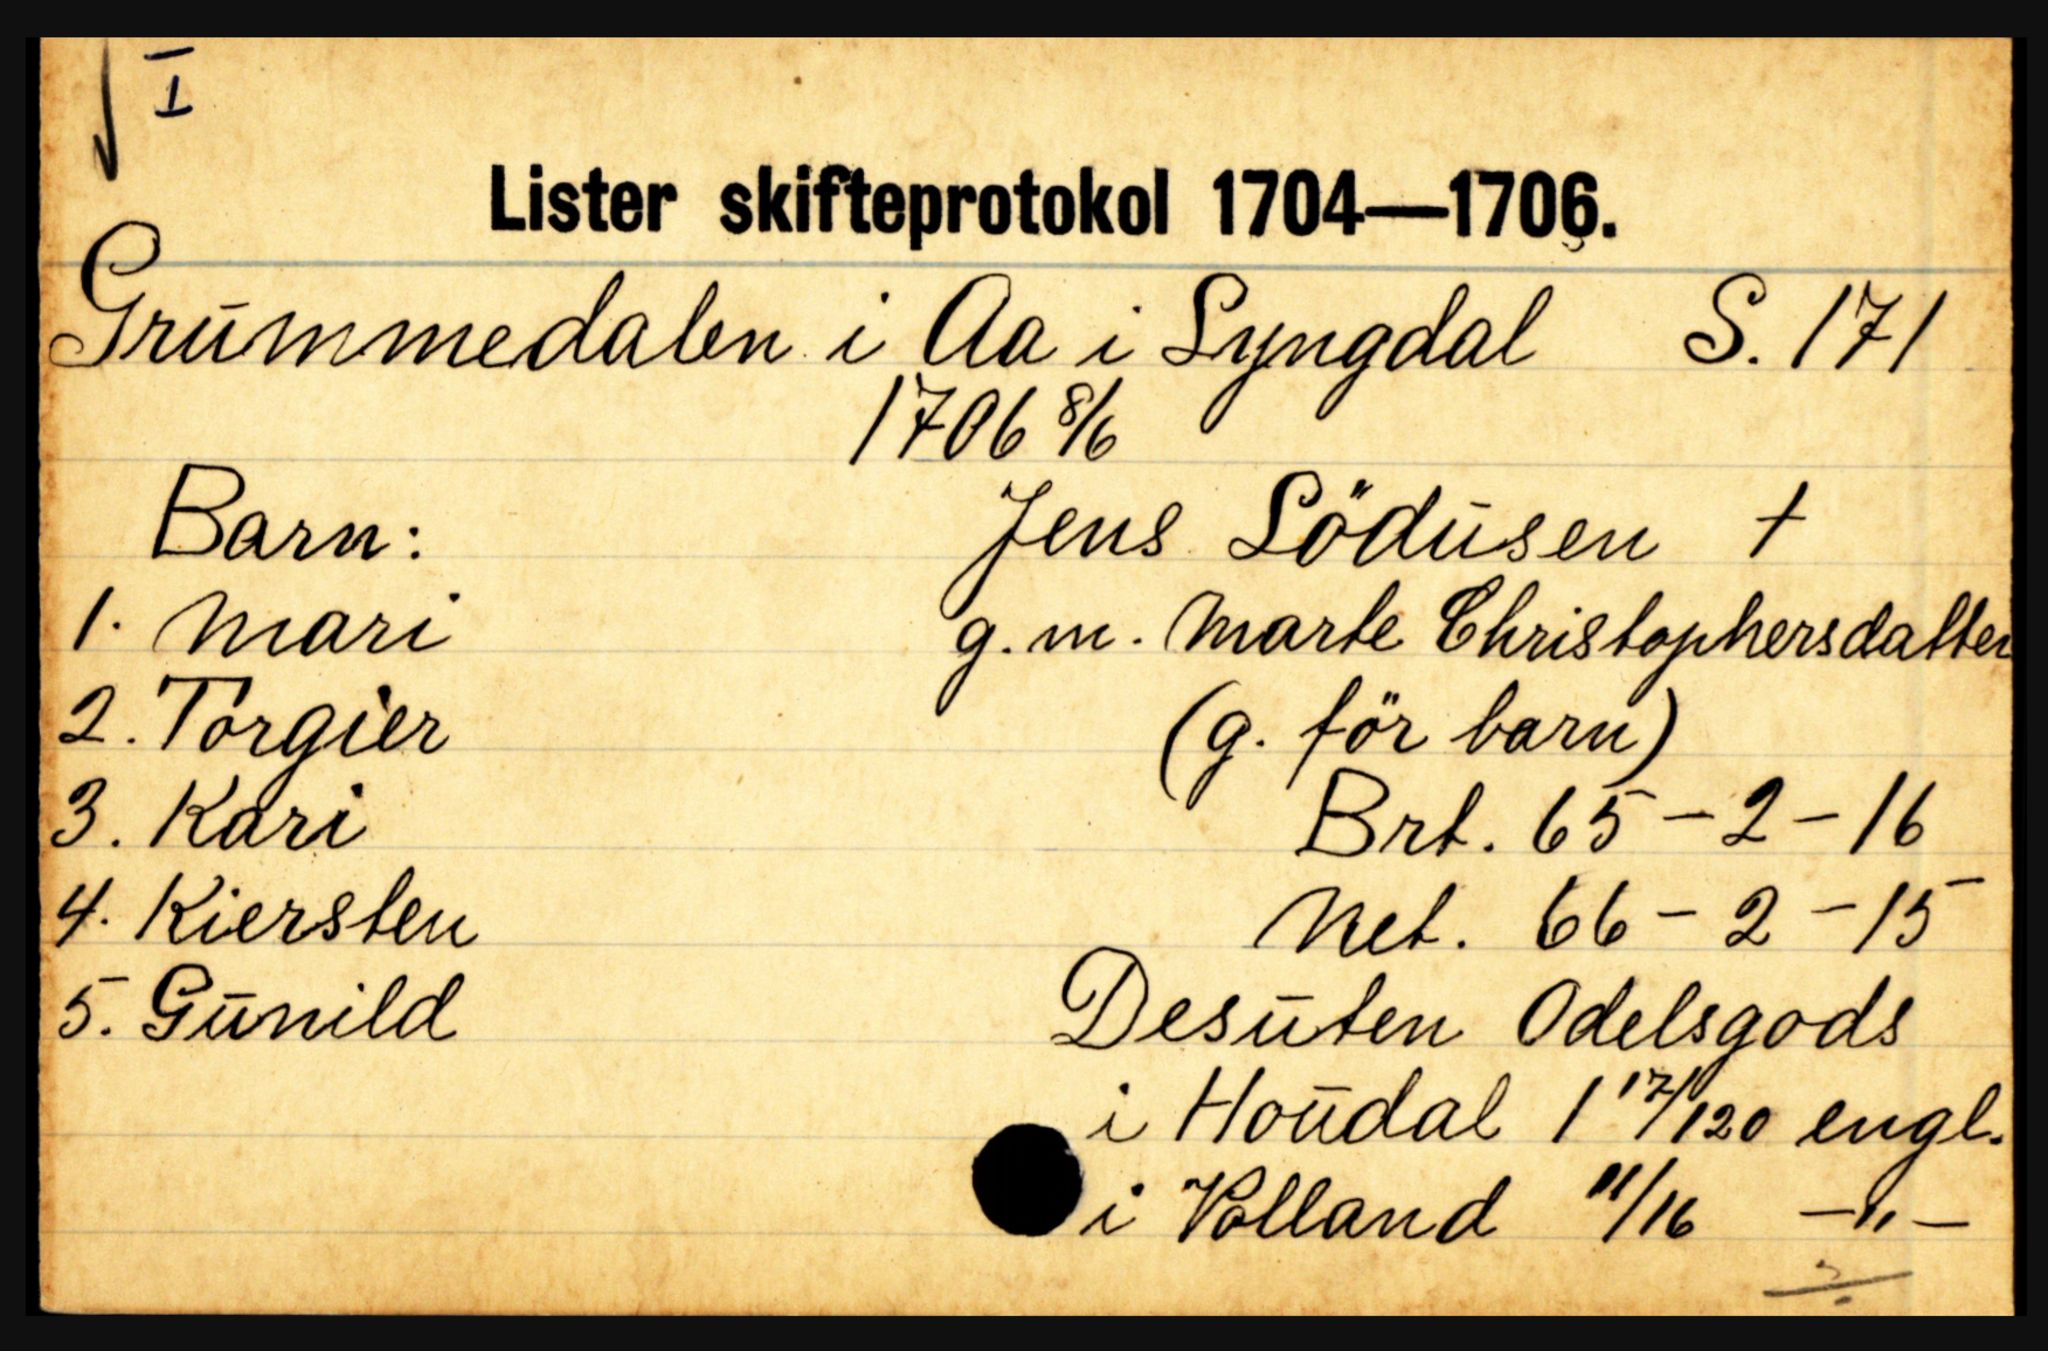 I
Lister skifteprotokol 1704—1706.
Grummedalen i Aa i Lyngdal S. 171
1706 8/6
Barn: Jens Lödusen +
1. Mari g. m. Marte Christophersdatter
2. Torgier (g. för barn)
3. Kari Brt. 65 - 2 - 16
4. Kiersten Net. 66 - 2 - 15
5. Gunild Desuten Odelsgods
i Houdal 1 17/120 engl.
i Volland 11/16 —"—